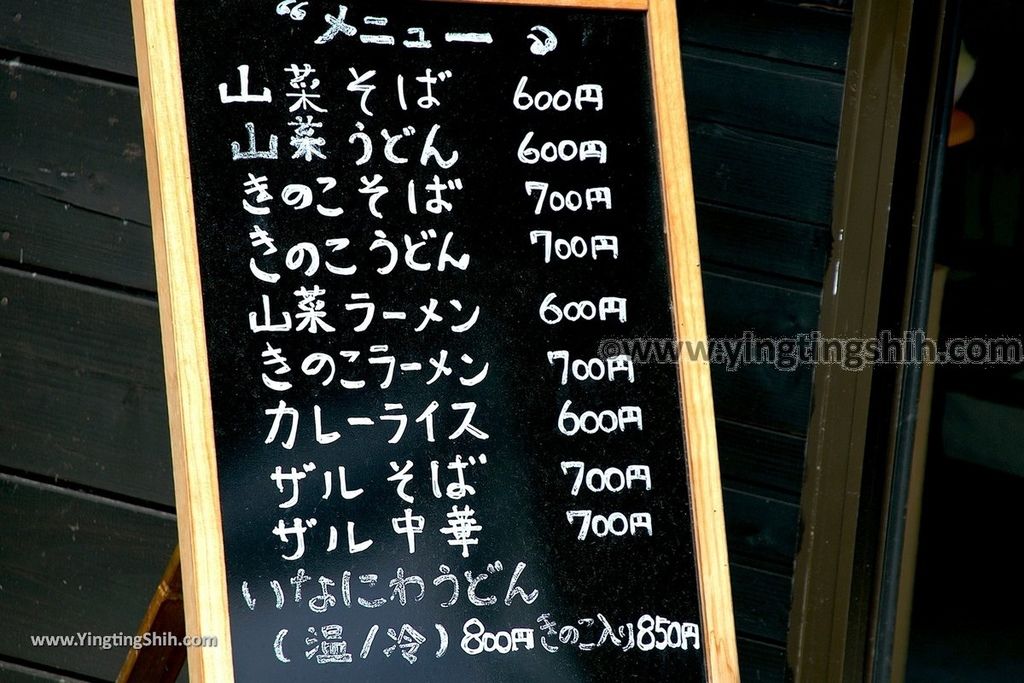 “メニュー”
山菜そば 600円
山菜うどん 600円
きのこそば 700円
きのこうどん 700円
山菜ラーメン 600円
きのこラーメン 700円
カレーライス 600円
ザルそば 700円
ザル中華 700円
いなにわうどん
(温/冷) 800円 きのこ入り850円
©www.yingtingshih.com
www.YingtingShih.com